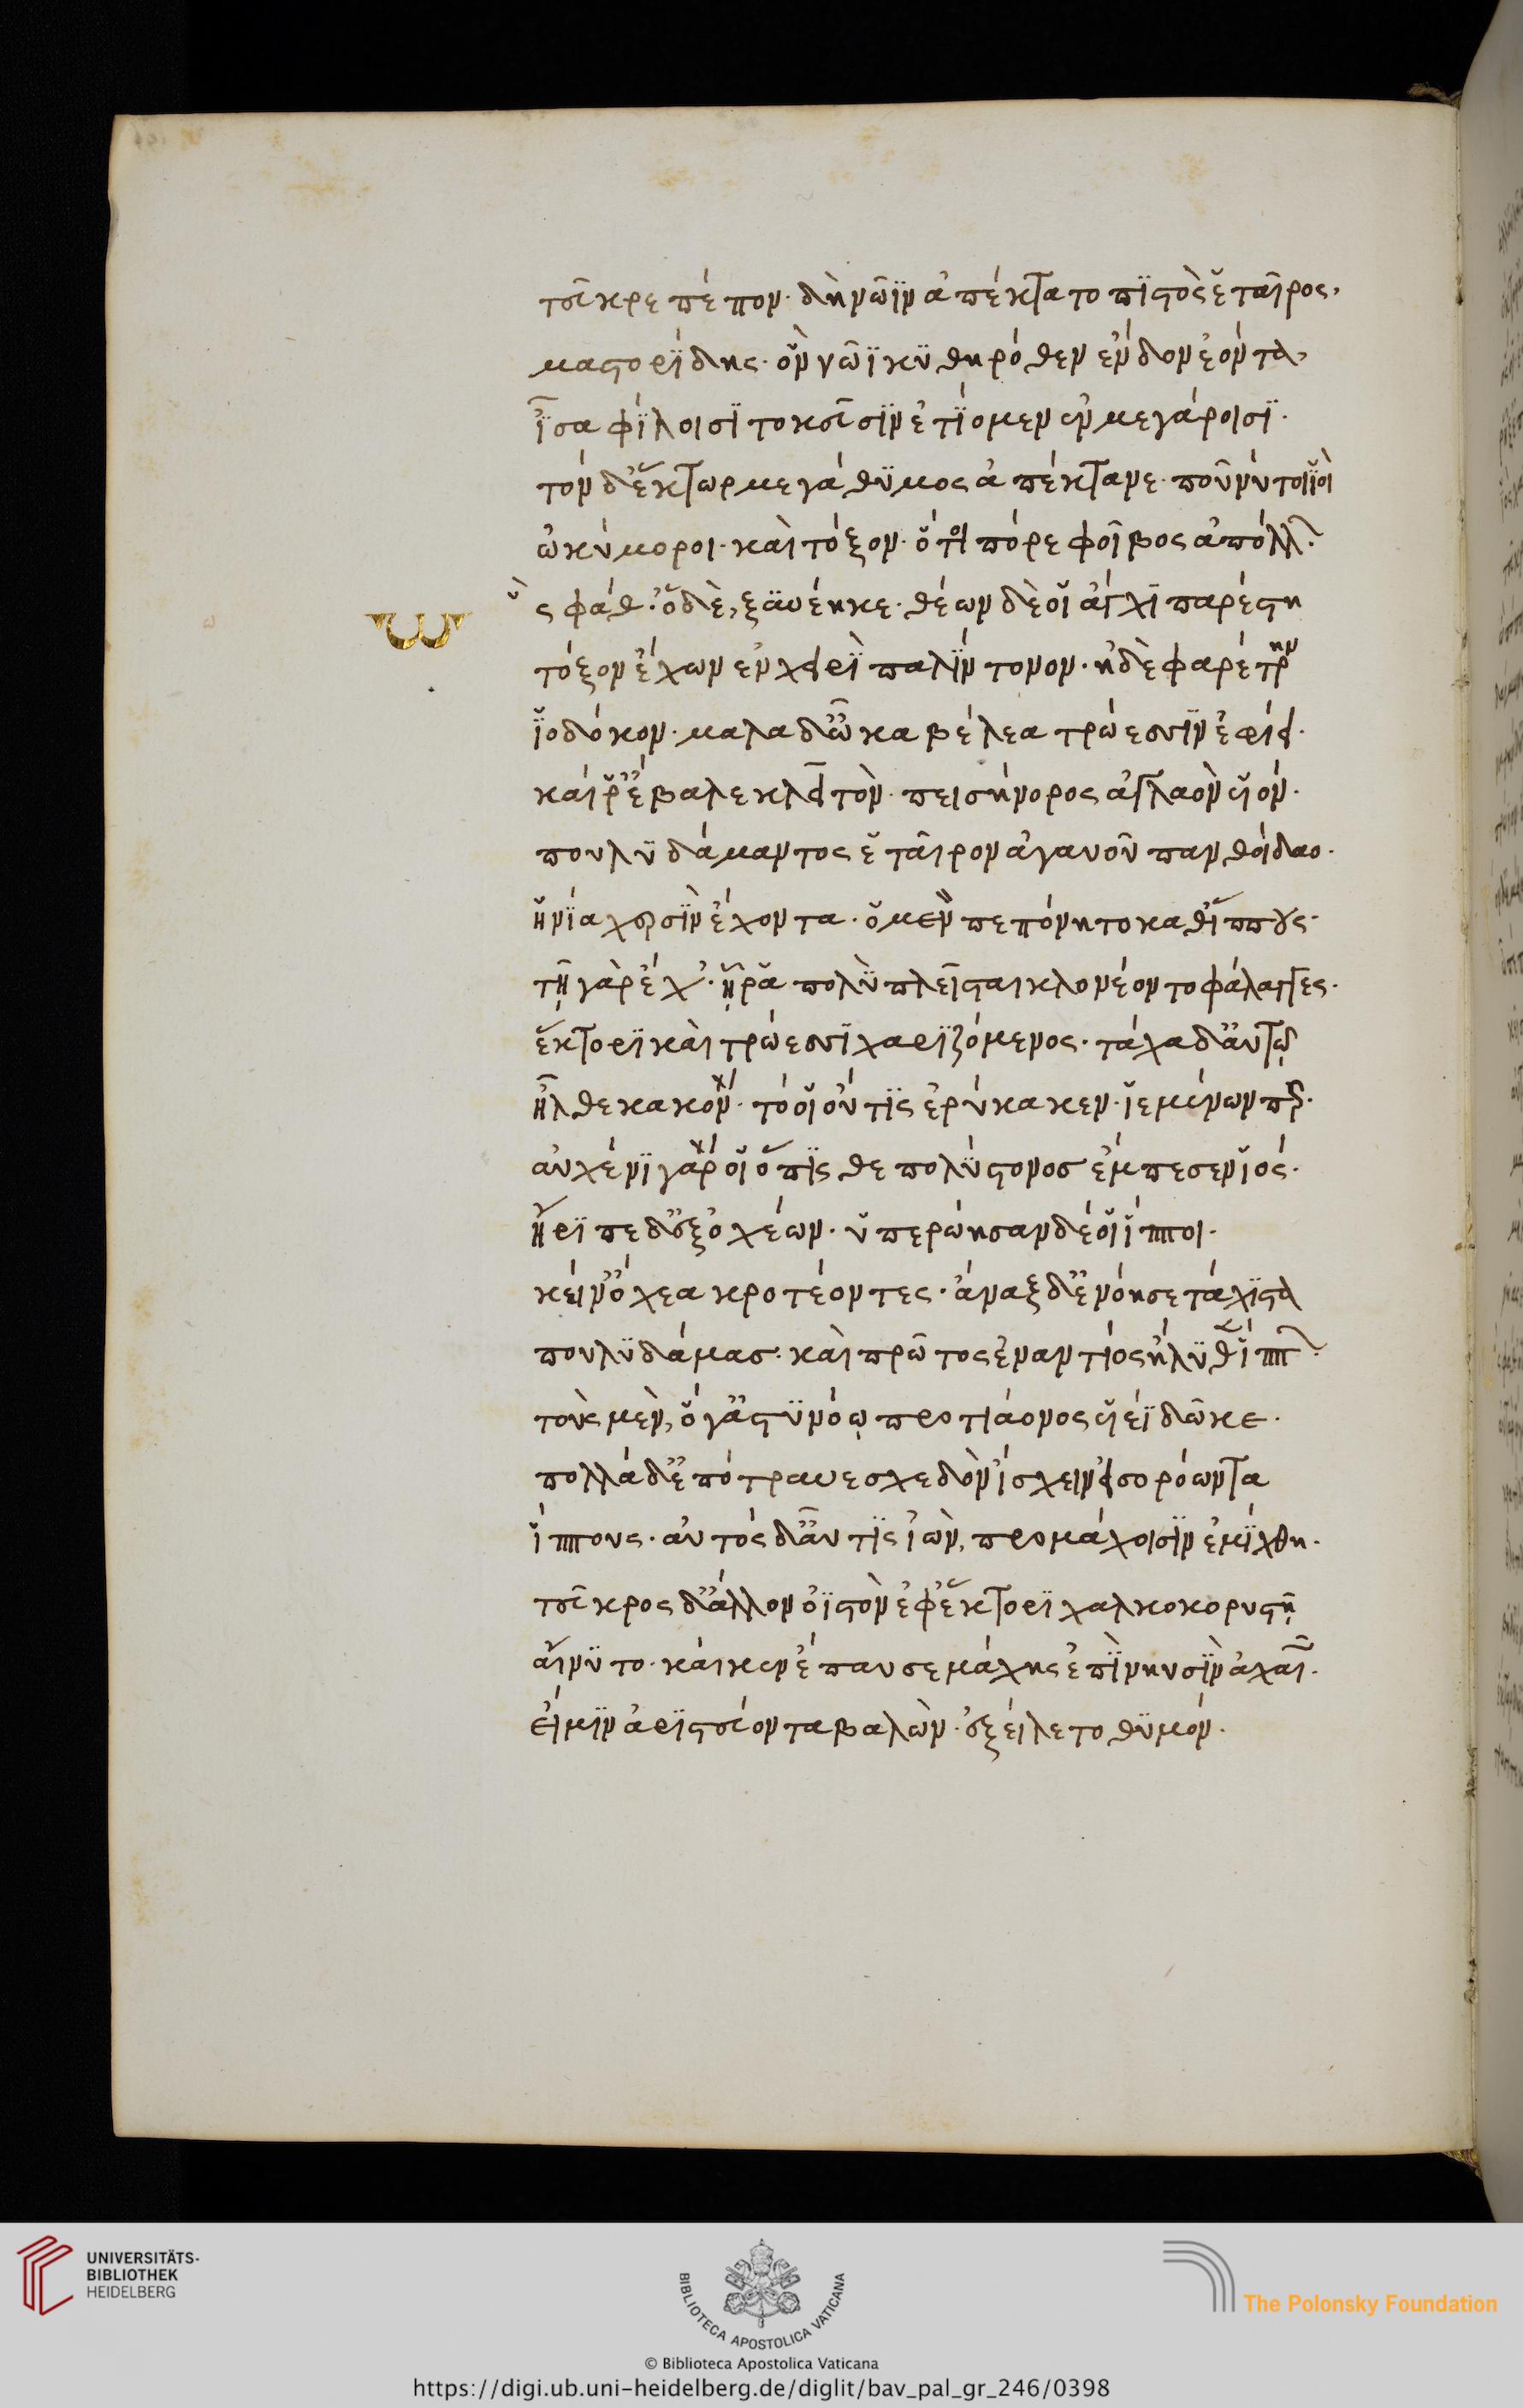 τεῦκρε πέπον· δὴ νῶϊν ἀπέκτατο πιστὸς ἑταῖρος,
μαστορίδης· ὃν νῶϊ κυθηρόθεν ἔνδον ἐόντα,
ἶσα φίλοισι τοκεῦσιν ἐτίομεν ἐν μεγάροισι·
τὸν δ' ἕκτωρ μεγάθυμος ἀπέκτανε· ποῦ νύ τοι ἰοὶ
ὠκύμοροι· καὶ τόξον· ὅ τοι πόρε φοῖβος ἀπόλλ
ὣς φάθ· ὁ δὲ, ξυνέηκε· θέων δέ οἱ ἄγχι παρέστη
τόξον ἔχων ἐν χειρὶ παλίντονον· ἠδὲ φαρέτρην
ἰοδόκον· μάλα δ' ὦκα βέλεα τρώεσσιν ἐφίει·
καί ῥ' ἔβαλε κλεῖτον· πεισήνορος ἀγλαὸν υἱόν·
πουλυδάμαντος ἑταῖρον ἀγαυοῦ πανθοίδαο·
ἡνία χερσὶν ἔχοντα· ὁ μὲν πεπόνητο καθ' ἵππους·
τῇ γὰρ ἔχ'· ᾗ ῥα πολὺ πλεῖσται κλονέοντο φάλαγγες·
ἕκτορι καὶ τρώεσσι χαριζόμενος· τάχα δ' αὐτῷ
ἦλθε κακόν· τό οἱ οὔ τις ἐρύκακεν· ἱεμένων περ·
αὐχένι γάρ οἱ ὄπισθε πολύστονος ἔμπεσεν ἰός·
ἤριπε δ' ἐξ ὀχέων· ὑπερώησαν δέ οἱ ἵπποι·
κείν' ὄχεα κροτέοντες· ἄναξ δ' ἐνόησε τάχιστα
πουλυδάμας· καὶ πρῶτος ἐναντίος ἤλυθ' ἵππ
τοὺς μὲν, ὅ γ' ἀστυνόῳ προτιάονος υἱέϊ δῶκε·
πολλὰ δ' ἐπότρυνε σχεδὸν ἴσχειν εἰσορόωντα
ἵππους· αὐτὸς δ' αὖτις ἰὼν, προμάχοισιν ἐμίχθη·
τεῦκρος δ' ἄλλον ὀϊστὸν ἐφ' ἕκτορι χαλκοκορυστῇ
αἴνυτο· καί κεν ἔπαυσε μάχης ἐπὶ νηυσὶν ἀχαι·
εἴ μιν ἀριστεύοντα βαλὼν· ἐξείλετο θυμόν·
UNIVERSITÄTS-
BIBLIOTHEK
HEIDELBERG
BIBLIOTECA APOSTOLICA VATICANA
The Polonsky Foundation
© Biblioteca Apostolica Vaticana
https://digi.ub.uni-heidelberg.de/diglit/bav_pal_gr_246/0398